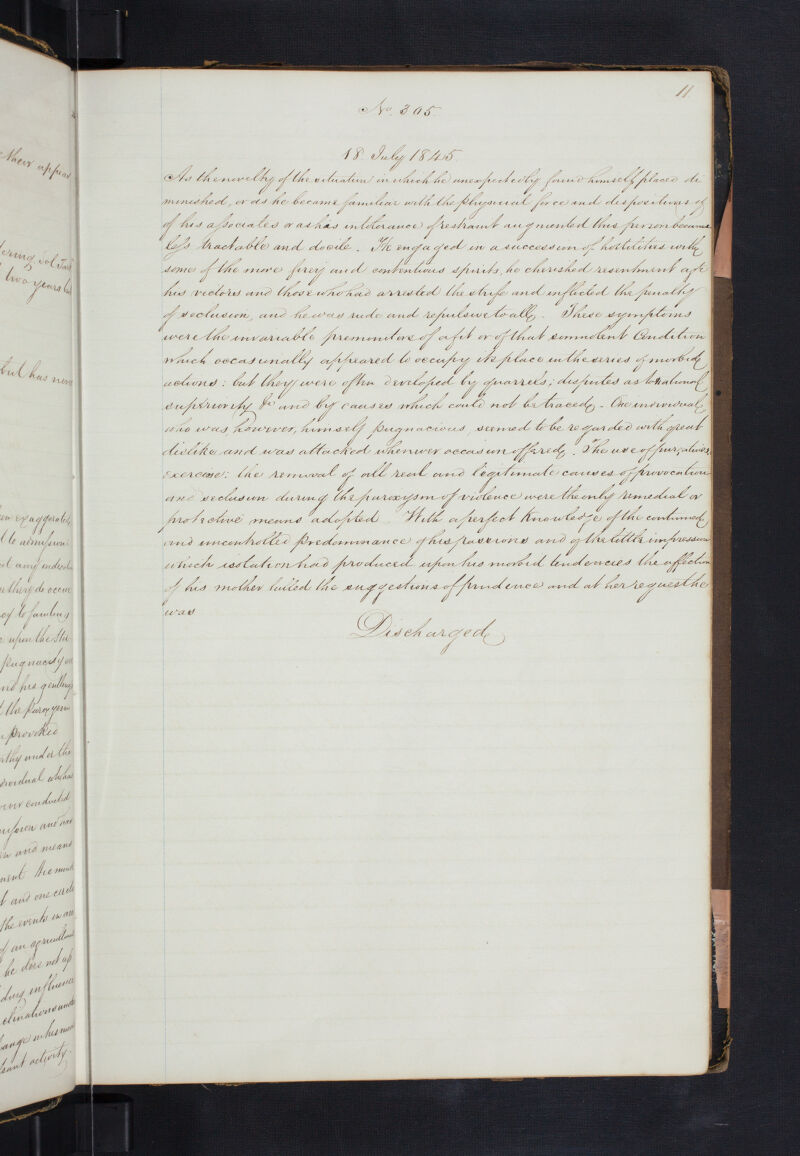 11
No. 305.
18 July 1845.
As the novelty of the situation in which he unexpectedly found himself placed di
minished, or as he became familiar with the physical force and dispositions of
of his associates or as his intolerance of restraint augmented this person became
less tractable and docile. He engaged in a succession of hostilities with
some of the more firey and contentious spirits, he cherished resentment agt
his victors and those who had arrested the strife and inflicted the penalty
of seclusion, and he was rude and repulsive to all. These symptoms
were the invariable premonitors of a fit or of that somnolent Condition
which occasionally appeared to occupy its place in the series of morbid
actions: but they were often developed by quarrels; disputes as to national
superiority &c and by causes which could not be traced. One individual
who was, however, himself pugnacious, seemed to be regarded with great
dislike and was attacked whenever occasion offered. The use of purgatives,
exercise; the removal of all real and legitimate causes of provocation
and seclusion during the paroxysm of violence were the only remedial or
protective means adopted. With a perfect knowledge of the continued
and uncontrolled predominance of his passions and of the little impression
which isolation had produced upon his morbid tendencies the affection
of his mother foiled the suggestions of prudence and at her request he
was
Discharged
their appear
two years
but has never
exaggerated
to admission
any individ
they do occur
of famless
upon the
pugnacity
his gentleness
the paroxysm
provoked
under the
individual
conducted
and was
and means
and one
the events in
of an agricultural
he does not ap
influence
clinations
change in his
activity.